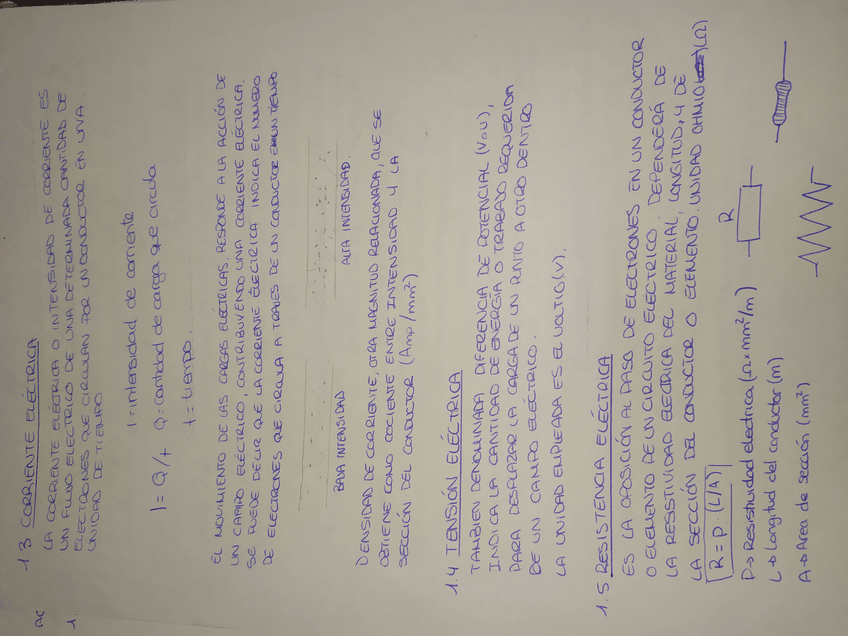 AC
1.
1.3 CORRIENTE ELÉCTRICA
LA CORRIENTE ELÉCTRICA O INTENSIDAD DE CORRIENTE ES
UN FLUJO ELECTRICO DE UNA DETERMINADA CANTIDAD DE
ELECTRONES QUE CIRCULAN POR UN CONDUCTOR EN UNA
UNIDAD DE TIEMPO
I = intensidad de corriente
I = Q/t Q = cantidad de carga que circula
t = tiempo.
EL MOVIMIENTO DE LAS CARGAS ELÉCTRICAS, RESPONDE A LA ACCIÓN DE
UN CAMPO ELÉCTRICO, CONTRIBUYENDO UNA CORRIENTE ELÉCTRICA.
SE PUEDE DECIR QUE LA CORRIENTE ELÉCTRICA INDICA EL NÚMERO
DE ELECTRONES QUE CIRCULA A TRAVES DE UN CONDUCTOR UN TIEMPO
BAJA INTENSIDAD ALTA INTENSIDAD.
DENSIDAD DE CORRIENTE, OTRA MAGNITUD RELACIONADA, QUE SE
OBTIENE COMO COCIENTE ENTRE INTENSIDAD Y LA
SECCIÓN DEL CONDUCTOR (Amp/mm²)
1.4 TENSIÓN ELÉCTRICA
TAMBIEN DENOMINADA DIFERENCIA DE POTENCIAL (V o U),
INDICA LA CANTIDAD DE ENERGÍA O TRABAJO REQUERIDA
PARA DESPLAZAR LA CARGA DE UN PUNTO A OTRO DENTRO
DE UN CAMPO ELÉCTRICO.
LA UNIDAD EMPLEADA ES EL VOLTIO (V).
1.5 RESISTENCIA ELÉCTRICA
ES LA OPOSICIÓN AL PASO DE ELECTRONES EN UN CONDUCTOR
O ELEMENTO DE UN CIRCUITO ELÉCTRICO. DEPENDERÁ DE
LA RESISTIVIDAD ELÉCTRICA DEL MATERIAL, LONGITUD, Y DE
LA SECCIÓN DEL CONDUCTOR O ELEMENTO. UNIDAD OHMIO (Ω)
R = P (L/A)
P → Resistividad electrica (Ω × mm²/m) R
L → Longitud del conductor (m)
A → Area de sección (mm²)